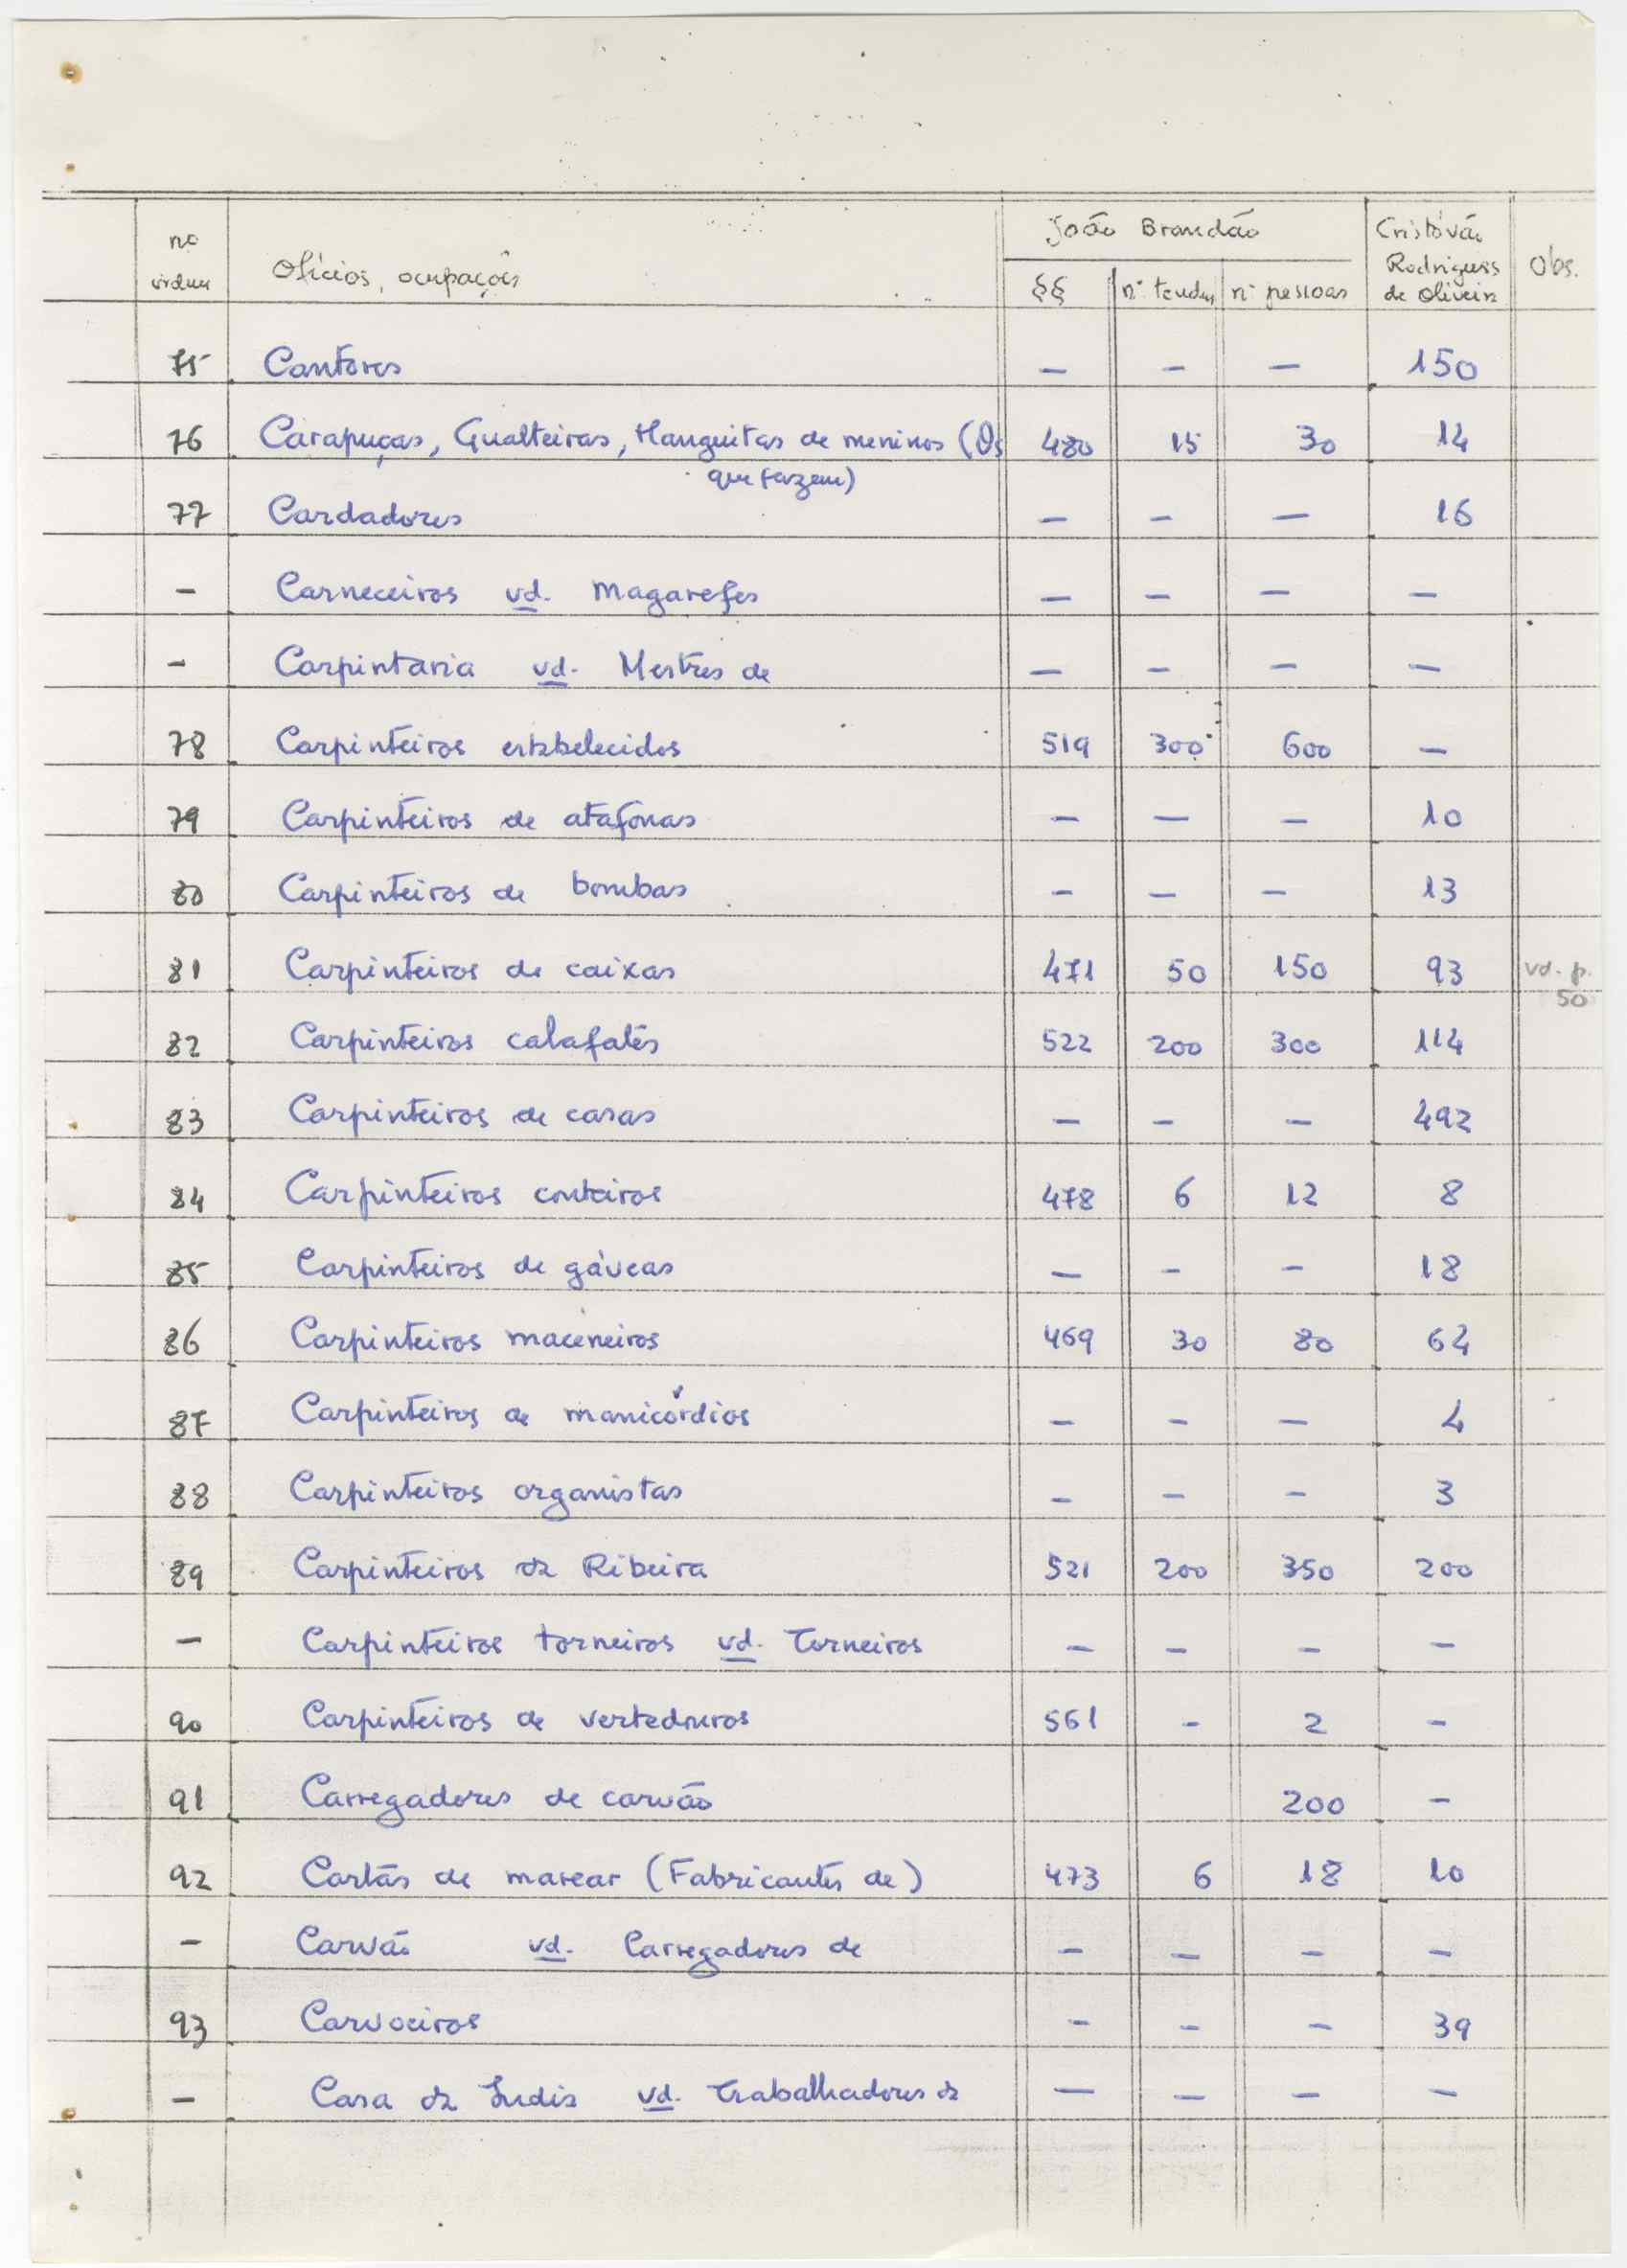 nº ordem Ofícios, ocupações João Brandão Cristóvão Rodrigues de Oliveira Obs.
§§ nº tendas nº pessoas
75 Cantores — — — 150
76 Carapuças, Gualteiras, Manguitas de meninos (Os 480 15 30 14
que fazem)
77 Cardadores — — — 16
- Carneceiros vd. Magarefes — — — —
- Carpintaria vd. Mestres de — — — —
78 Carpinteiros estabelecidos 519 300 600 —
79 Carpinteiros de atafonas — — — 10
80 Carpinteiros de bombas — — — 13
81 Carpinteiros de caixas 471 50 150 93 vd. p. 50
82 Carpinteiros calafates 522 200 300 114
83 Carpinteiros de casas — — — 492
84 Carpinteiros conteiros 478 6 12 8
85 Carpinteiros de gáveas — — — 18
86 Carpinteiros maceneiros 469 30 80 64
87 Carpinteiros de manicórdios — — — 4
88 Carpinteiros organistas — — — 3
89 Carpinteiros da Ribeira 521 200 350 200
- Carpinteiros torneiros vd. Torneiros — — — —
90 Carpinteiros de vertedouros 561 - 2 -
91 Carregadores de carvão 200 -
92 Cartas de marear (Fabricantes de) 473 6 18 10
- Carvão vd. Carregadores de — — — —
93 Carvoeiros — — — 39
- Casa da Índia vd. Trabalhadores da — — — —